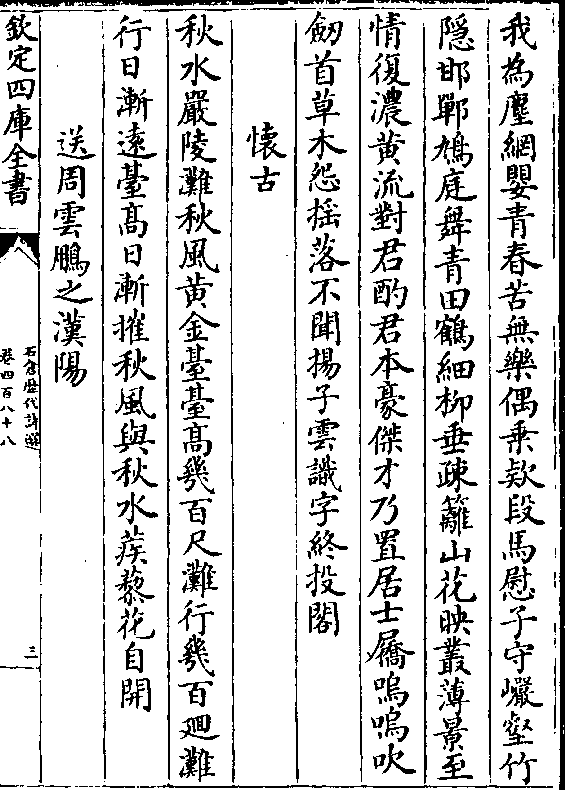 我為塵網嬰青春苦無樂偶乗欵段馬慰子守巖壑竹
隠邯鄲鳩庭舞青田鶴細柳垂疎籬山花映叢薄景至
情復濃黄流對君酌君本豪傑才乃置居士屩嗚嗚吹
劒首草木怨揺落不聞揚子雲識字終投閣
懐古
秋水嚴陵灘秋風黄金臺臺髙幾百尺灘行幾百廻灘
行日漸逺臺髙日漸摧秋風與秋水蒺藜花自開
送周雲鵬之漢陽
欽定四庫全書
石倉歴代詩選
卷四百八十八
三